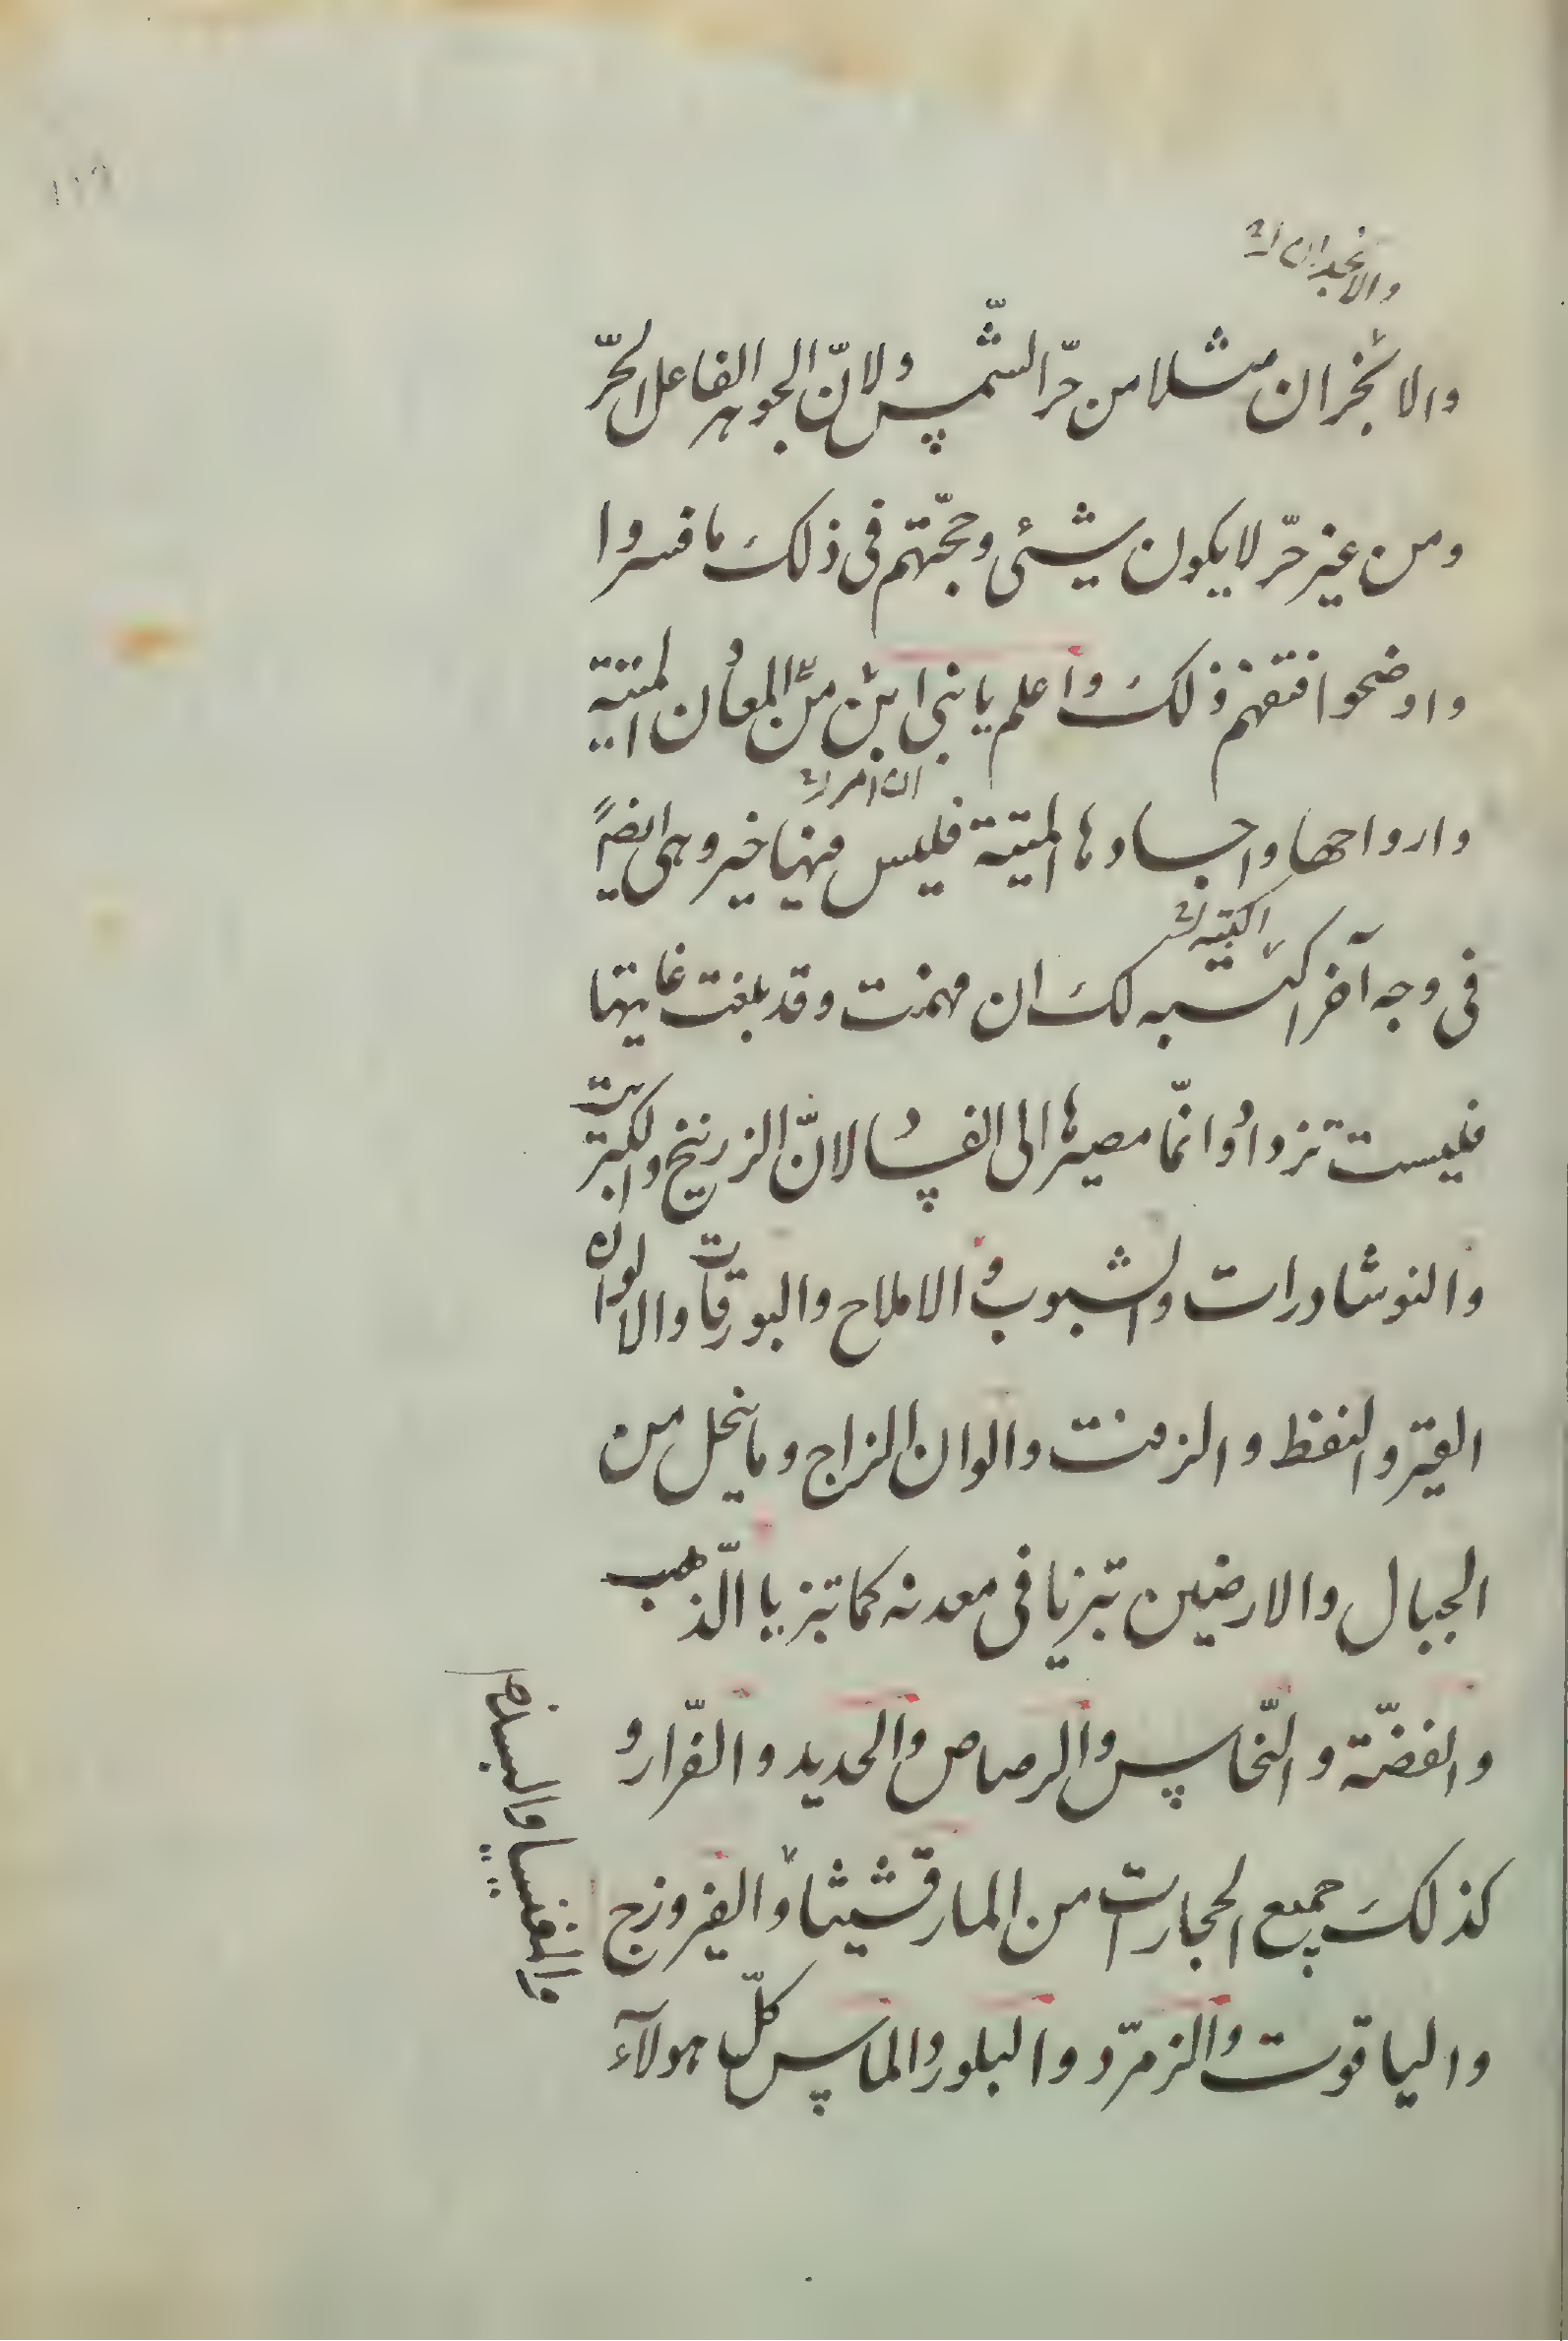 والانجدان
والابخران مثلا من حرّ الشّمس ولانّ الجوهر الفاعل الحرّ
ومن غير حرّ لا يكون شيئ وحجّتهم فى ذلك ما فسروا
واوضحوا فتفهم ذلك واعلم يا بنى ابن من المعادن الميتة
ان امر
وارواحها واجسادها الميتة فليس فيها خير وهى ايضاً
اكتبه
فى وجه آخر اكتسبه لك ان فهمت وقد بلغت غايتها
فليست تزداد وانّما مصيرها الى الفساد لانّ الزرنيخ والكبريت
والنوشادرات والشبوب والاملاح والبورقات والالوان
القير والنفط والزفت والوان الزاج وما ينحل من
الجبال والارضين تبزيا فى معدنه كما تبزيا الذّهب
والفضّة والنّحاس والرصاص والحديد والفّرار و
كذلك جميع الحجارات من المارقشيثا والفيروزج
والمغنيسيا
والياقوت والزمرّد والبلور والماس كلّ هولآء